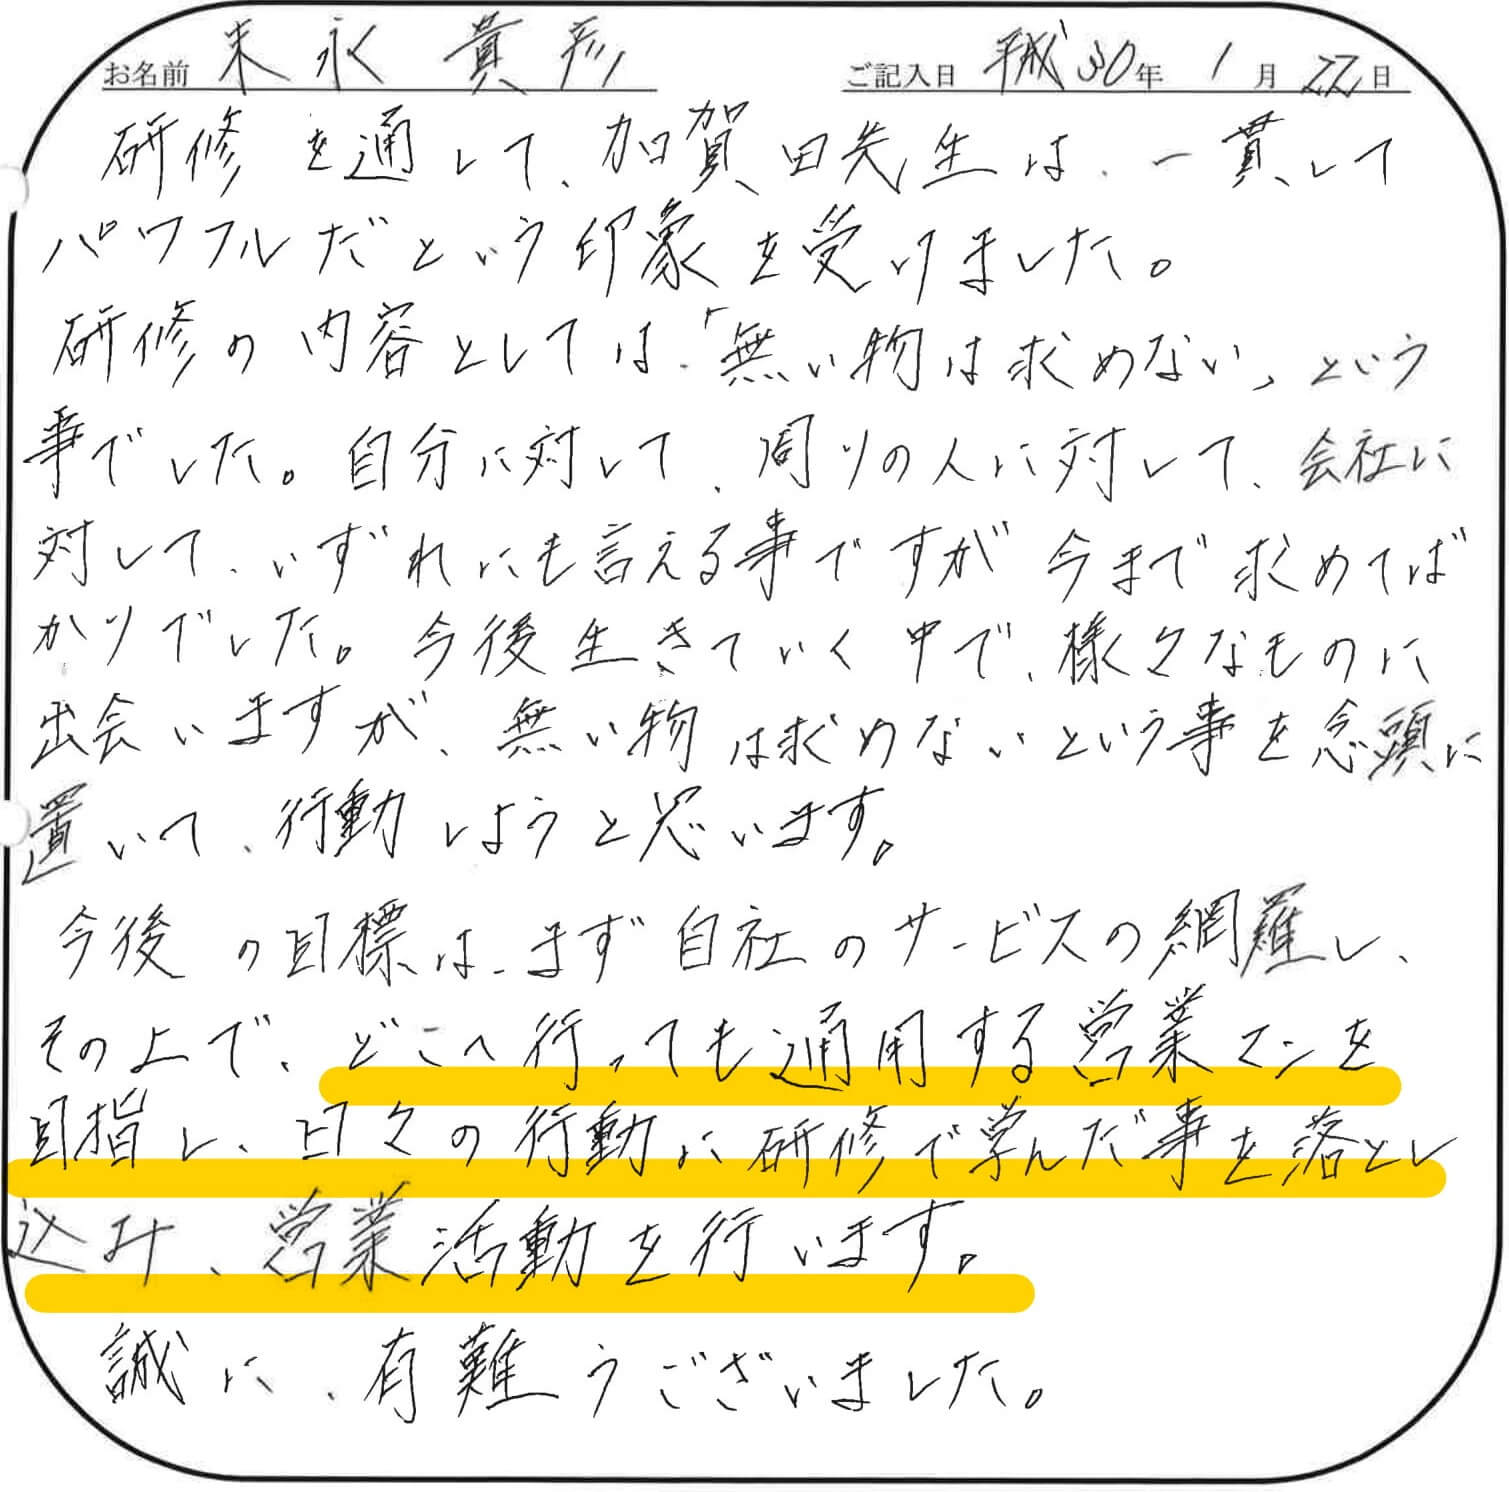 お名前 末永 貴彦 ご記入日 平成30年 1月 22日
研修を通して、加賀田先生は、一貫して
パワフルだという印象を受けました。
研修の内容としては、「無い物は求めない」という
事でした。自分に対して、周りの人に対して、会社に
対して、いずれにも言える事ですが今まで求めてば
かりでした。今後生きていく中で、様々なものに
出会いますが、無い物は求めないという事を念頭に
置いて、行動しようと思います。
今後の目標は、まず自社のサービスの網羅し、
その上で、どこへ行っても通用する営業マンを
目指し、日々の行動に研修で学んだ事を落とし
込み、営業活動を行います。
誠に、有難うございました。